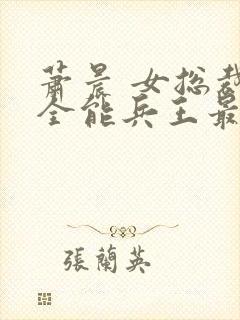 萧晨 女总裁
全能兵王最
張蘭英